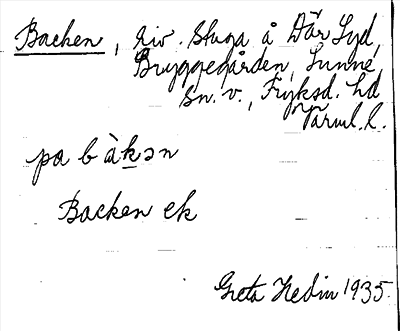 Backen, riv. Stuga å Där Syd,
Bryggegården, Sunne
sn. v., Fryksd. hd
Värml. l.
på b àkən
Backen ek
Greta Hedin 1935.